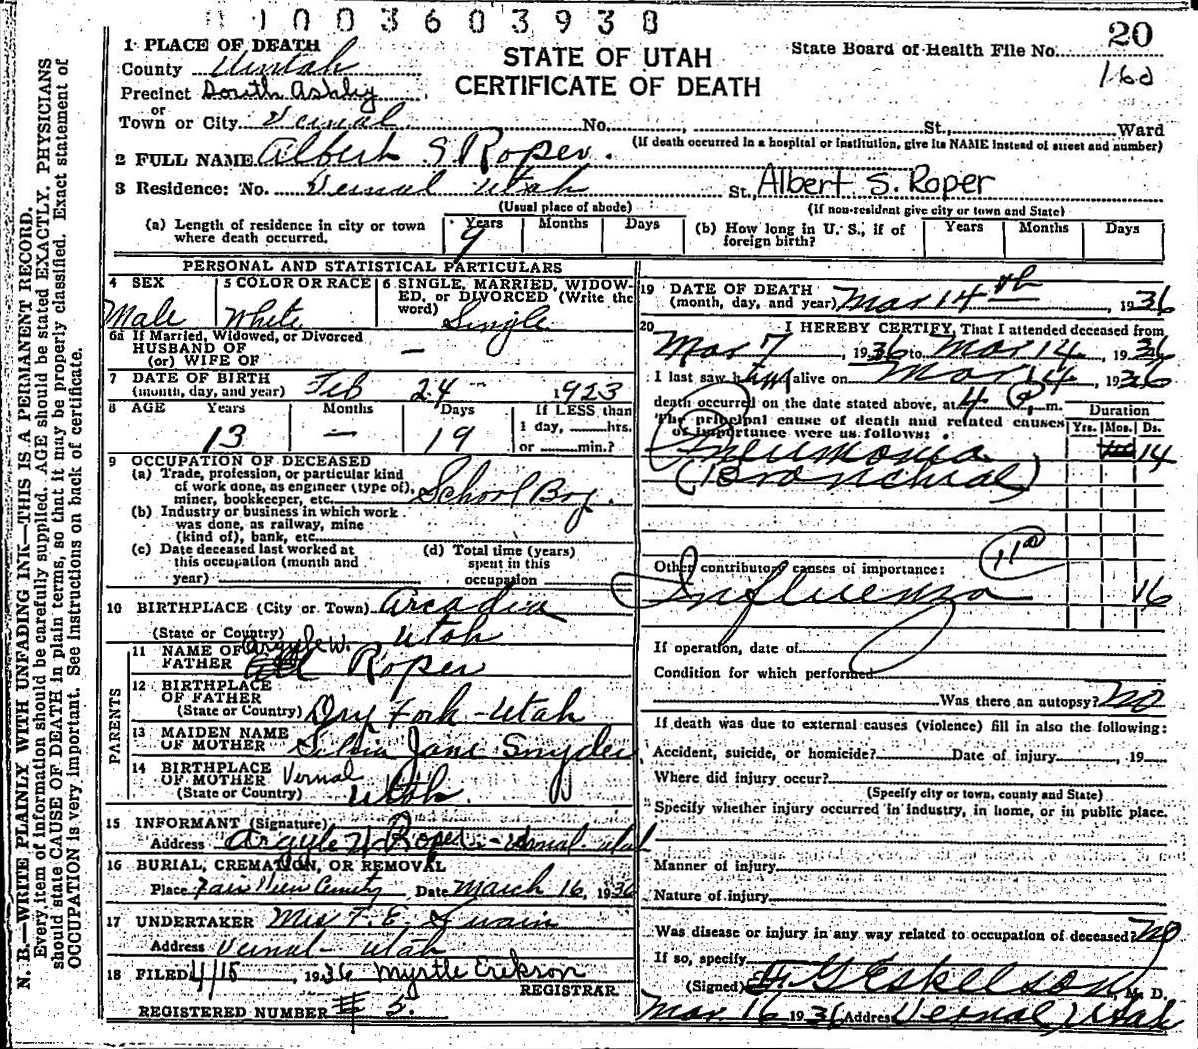 1003603938
20
STATE OF UTAH
CERTIFICATE OF DEATH
State Board of Health File No.
160
1 PLACE OF DEATH
County Uintah
Precinct South Ashley
or
Town or City Vernal No. , St., Ward
(If death occurred in a hospital or institution, give its NAME instead of street and number)
2 FULL NAME Albert S Roper.
3 Residence: No. Vernal Utah St, Albert S. Roper
(Usual place of abode) (If non-resident give city or town and State)
(a) Length of residence in city or town where death occurred. Years 9 Months Days
(b) How long in U. S., if of foreign birth? Years Months Days
PERSONAL AND STATISTICAL PARTICULARS
4 SEX Male
5 COLOR OR RACE White
6 SINGLE, MARRIED, WIDOWED, or DIVORCED (Write the word) Single
6a If Married, Widowed, or Divorced
HUSBAND OF
(or) WIFE OF —
7 DATE OF BIRTH
(month, day, and year) Feb 24 1923
8 AGE Years 13 Months — Days 19 If LESS than
1 day, hrs.
or min.?
9 OCCUPATION OF DECEASED
(a) Trade, profession, or particular kind
of work done, as engineer (type of),
miner, bookkeeper, etc. School Boy.
(b) Industry or business in which work
was done, as railway, mine
(kind of), bank, etc.
(c) Date deceased last worked at
this occupation (month and
year)
(d) Total time (years)
spent in this
occupation
10 BIRTHPLACE (City or Town) Arcadia
(State or Country) Utah
PARENTS
11 NAME OF FATHER Argyle W. Roper
12 BIRTHPLACE
OF FATHER
(State or Country) Dry Fork - Utah
13 MAIDEN NAME
OF MOTHER Jane Snyder
14 BIRTHPLACE
OF MOTHER Vernal
(State or Country) Utah.
15 INFORMANT (Signature)
Address Argyle W Roper - Vernal - Utah
16 BURIAL, CREMATION, OR REMOVAL
Place Date March 16, 1936
17 UNDERTAKER Mrs F. E. Swain
Address Vernal - Utah
18 FILED 4/15 1936 Myrtle Erikson
REGISTRAR
REGISTERED NUMBER # 5.
19 DATE OF DEATH
(month, day, and year) Mar 14th 1936
20 I HEREBY CERTIFY, That I attended deceased from
Mar 7, 1936 to Mar 14, 1936
I last saw him alive on Mar 14, 1936
death occurred on the date stated above, at 4 P. m.
The principal cause of death and related causes
of importance were as follows:
Duration
Yrs. Mos. Ds.
Pneumonia 14
(Bronchial)
11a
Other contributory causes of importance:
Influenza 16
If operation, date of
Condition for which performed
Was there an autopsy? No
If death was due to external causes (violence) fill in also the following:
Accident, suicide, or homicide? Date of injury , 19
Where did injury occur?
(Specify city or town, county and State)
Specify whether injury occurred in industry, in home, or in public place.
Manner of injury
Nature of injury
Was disease or injury in any way related to occupation of deceased? No
If so, specify
(Signed) G Eskelson, M. D.
Mar 16 1936 Address Vernal Utah
N. B.—WRITE PLAINLY WITH UNFADING INK—THIS IS A PERMANENT RECORD.
Every item of information should be carefully supplied. AGE should be stated EXACTLY. PHYSICIANS
should state CAUSE OF DEATH in plain terms, so that it may be properly classified. Exact statement of
OCCUPATION is very important. See instructions on back of certificate.